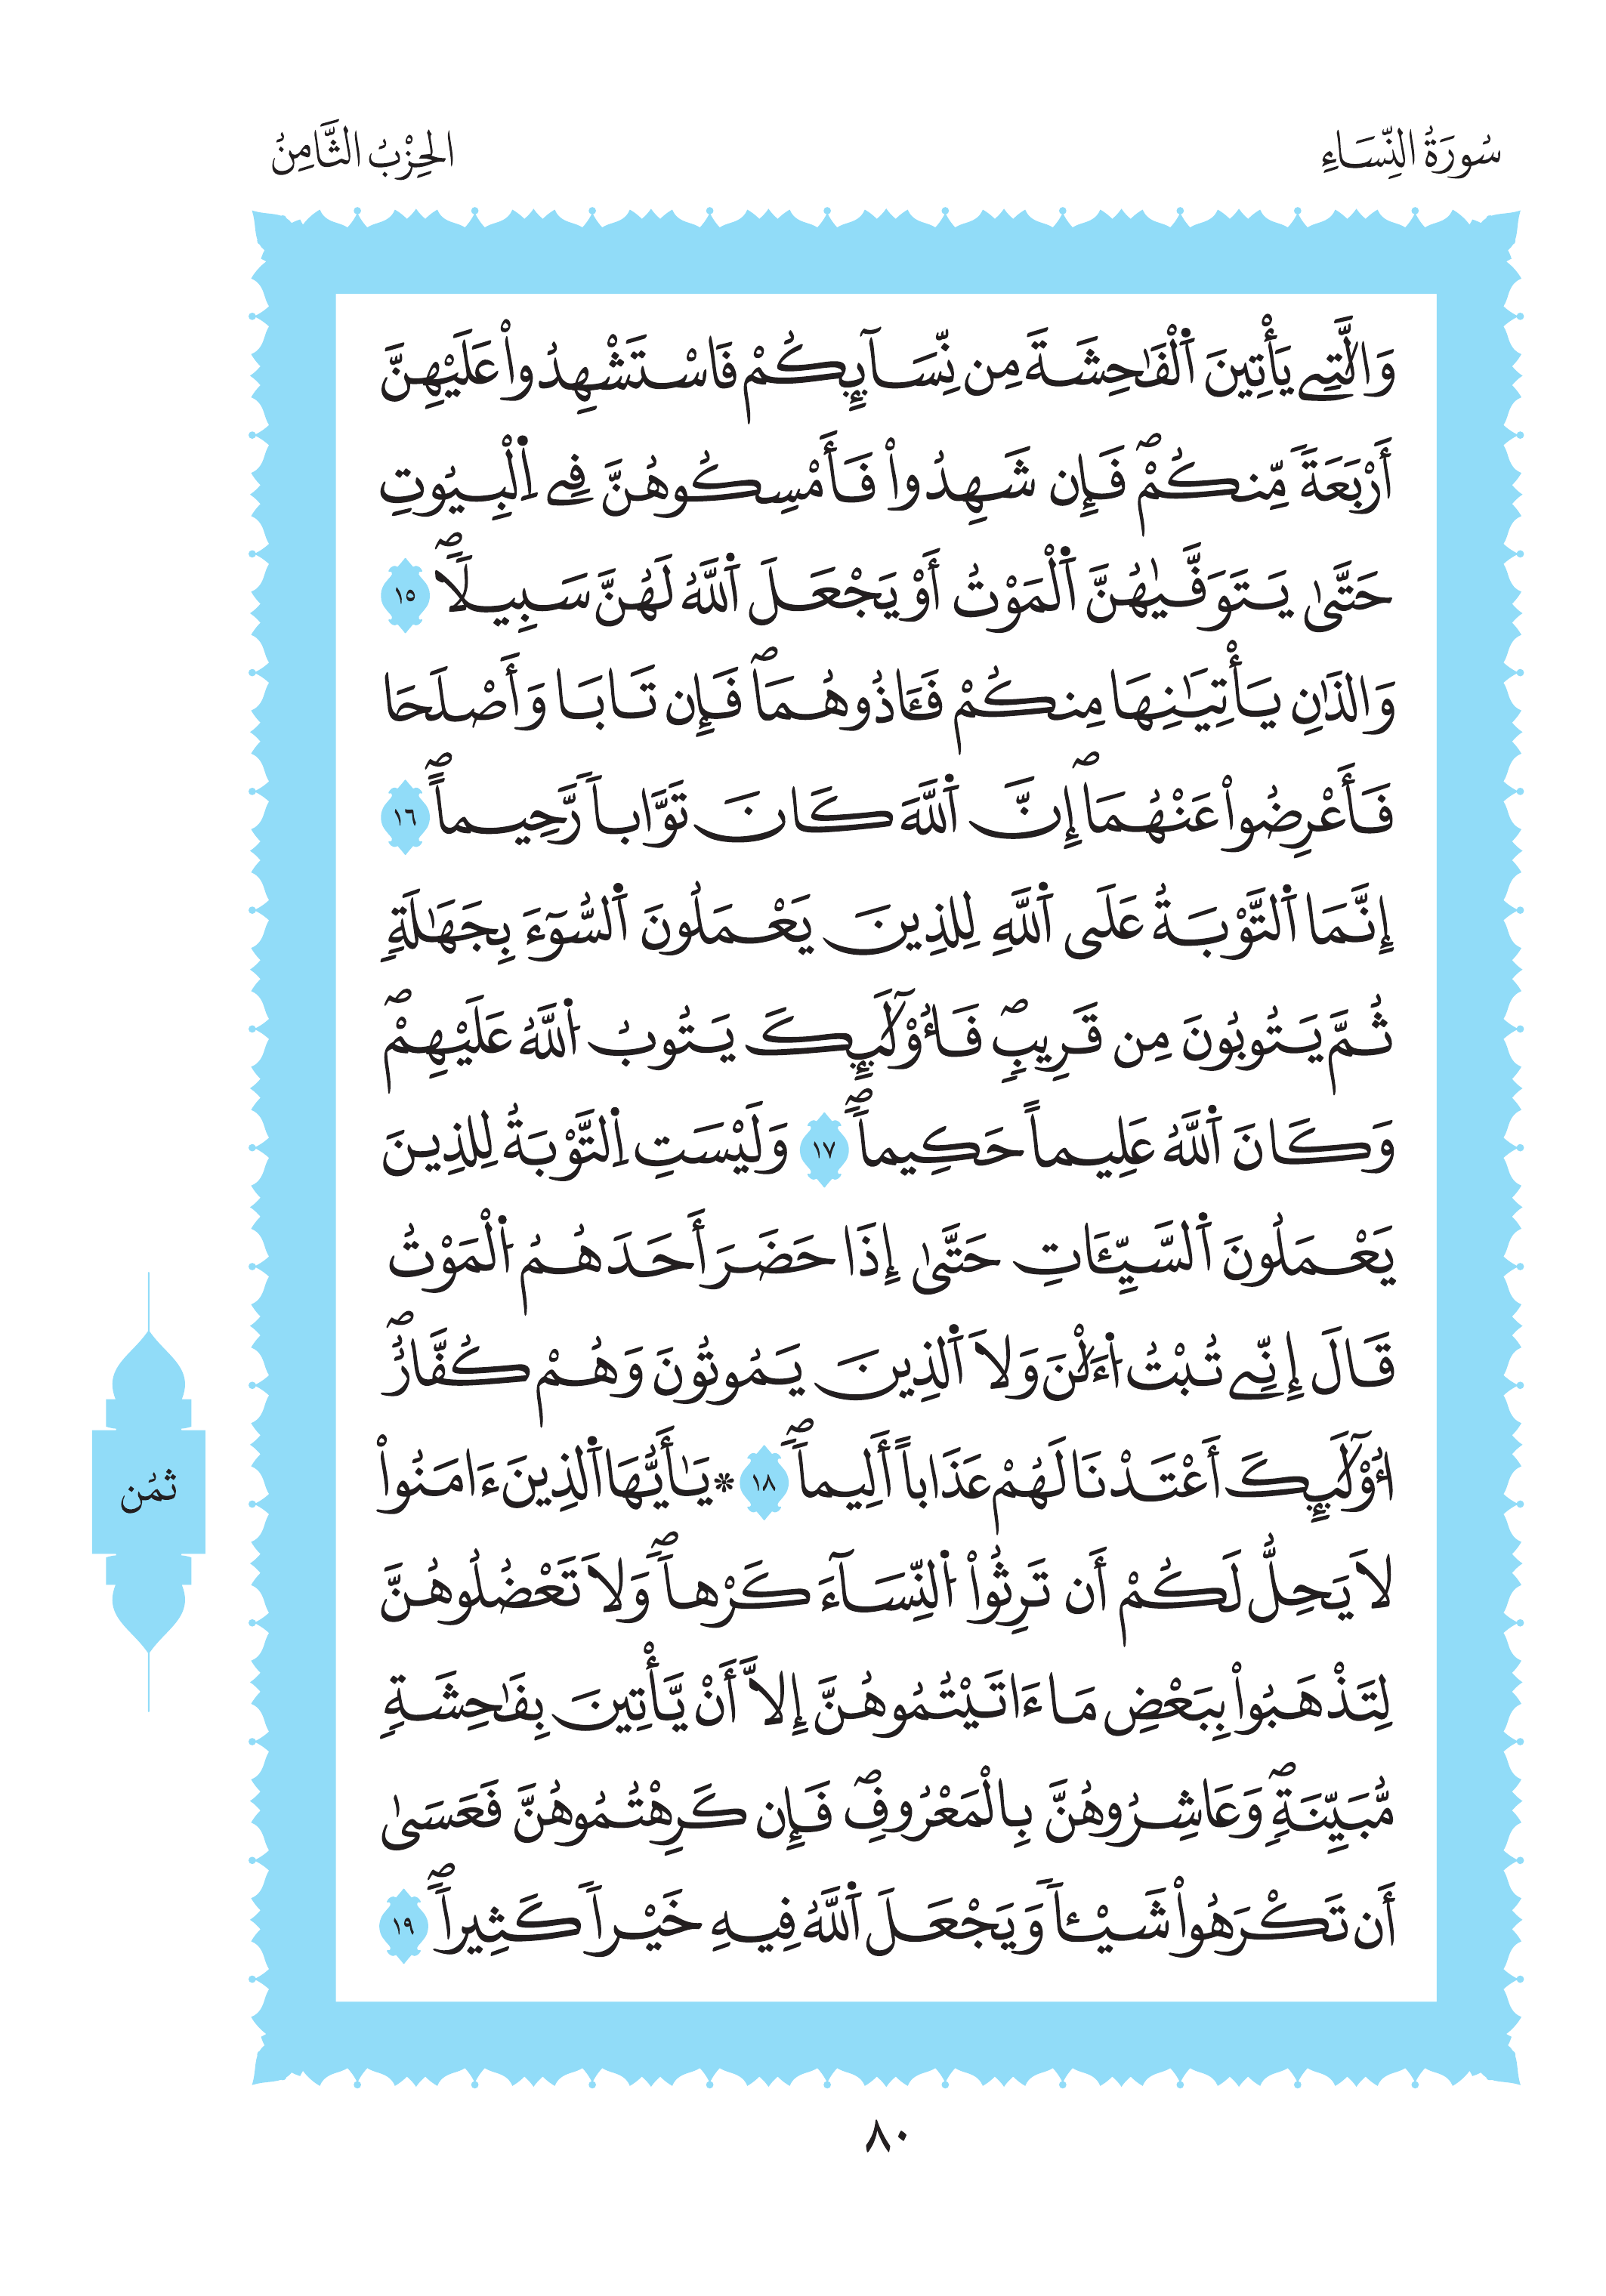 سُورَةُ النِّسَاءِ
الحِزْبُ الثَّامِنُ
وَالَّٰتِے يَأْتِينَ اَ۬لْفَٰحِشَةَ مِن نِّسَآئِكُمْ فَاسْتَشْهِدُواْ عَلَيْهِنَّ
أَرْبَعَةٗ مِّنكُمْۖ فَإِن شَهِدُواْ فَأَمْسِكُوهُنَّ فِے اِ۬لْبِيُوتِ
حَتَّىٰ يَتَوَفَّيٰهُنَّ اَ۬لْمَوْتُ أَوْ يَجْعَلَ اَ۬للَّهُ لَهُنَّ سَبِيلاٗۖ ١٥
وَالذَٰنِ يَأْتِيَٰنِهَا مِنكُمْ فَـَٔاذُوهُمَاۖ فَإِن تَابَا وَأَصْلَحَا
فَأَعْرِضُواْ عَنْهُمَاۖ إِنَّ اَ۬للَّهَ كَانَ تَوَّاباٗ رَّحِيماًۖ ١٦
إِنَّمَا اَ۬لتَّوْبَةُ عَلَى اَ۬للَّهِ لِلذِينَ يَعْمَلُونَ اَ۬لسُّوٓءَ بِجَهَٰلَةٖ
ثُمَّ يَتُوبُونَ مِن قَرِيبٖۖ فَأُوْلَٰٓئِكَ يَتُوبُ اُ۬للَّهُ عَلَيْهِمْۖ
وَكَانَ اَ۬للَّهُ عَلِيماً حَكِيماٗۖ ١٧ وَلَيْسَتِ اِ۬لتَّوْبَةُ لِلذِينَ
يَعْمَلُونَ اَ۬لسَّيِّـَٔاتِ حَتَّىٰ إِذَا حَضَرَ أَحَدَهُمُ اُ۬لْمَوْتُ
قَالَ إِنِّے تُبْتُ اُ۬لَٰٔنَ وَلَا اَ۬لذِينَ يَمُوتُونَ وَهُمْ كُفَّارٌۖ
أُوْلَٰٓئِكَ أَعْتَدْنَا لَهُمْ عَذَاباً أَلِيماٗۖ ١٨ * يَٰأَيُّهَا اَ۬لذِينَ ءَامَنُواْ
لَا يَحِلُّ لَكُمْ أَن تَرِثُواْ اُ۬لنِّسَآءَ كَرْهاٗۖ وَلَا تَعْضُلُوهُنَّ
لِتَذْهَبُواْ بِبَعْضِ مَا ءَاتَيْتُمُوهُنَّ إِلَّا أَنْ يَّأْتِينَ بِفَٰحِشَةٖ
مُّبَيِّنَةٖۖ وَعَاشِرُوهُنَّ بِالْمَعْرُوفِۖ فَإِن كَرِهْتُمُوهُنَّ فَعَسَىٰ
أَن تَكْرَهُواْ شَيْـٔاٗ وَيَجْعَلَ اَ۬للَّهُ فِيهِ خَيْراٗ كَثِيراٗۖ ١٩
ثُمُن
٨٠